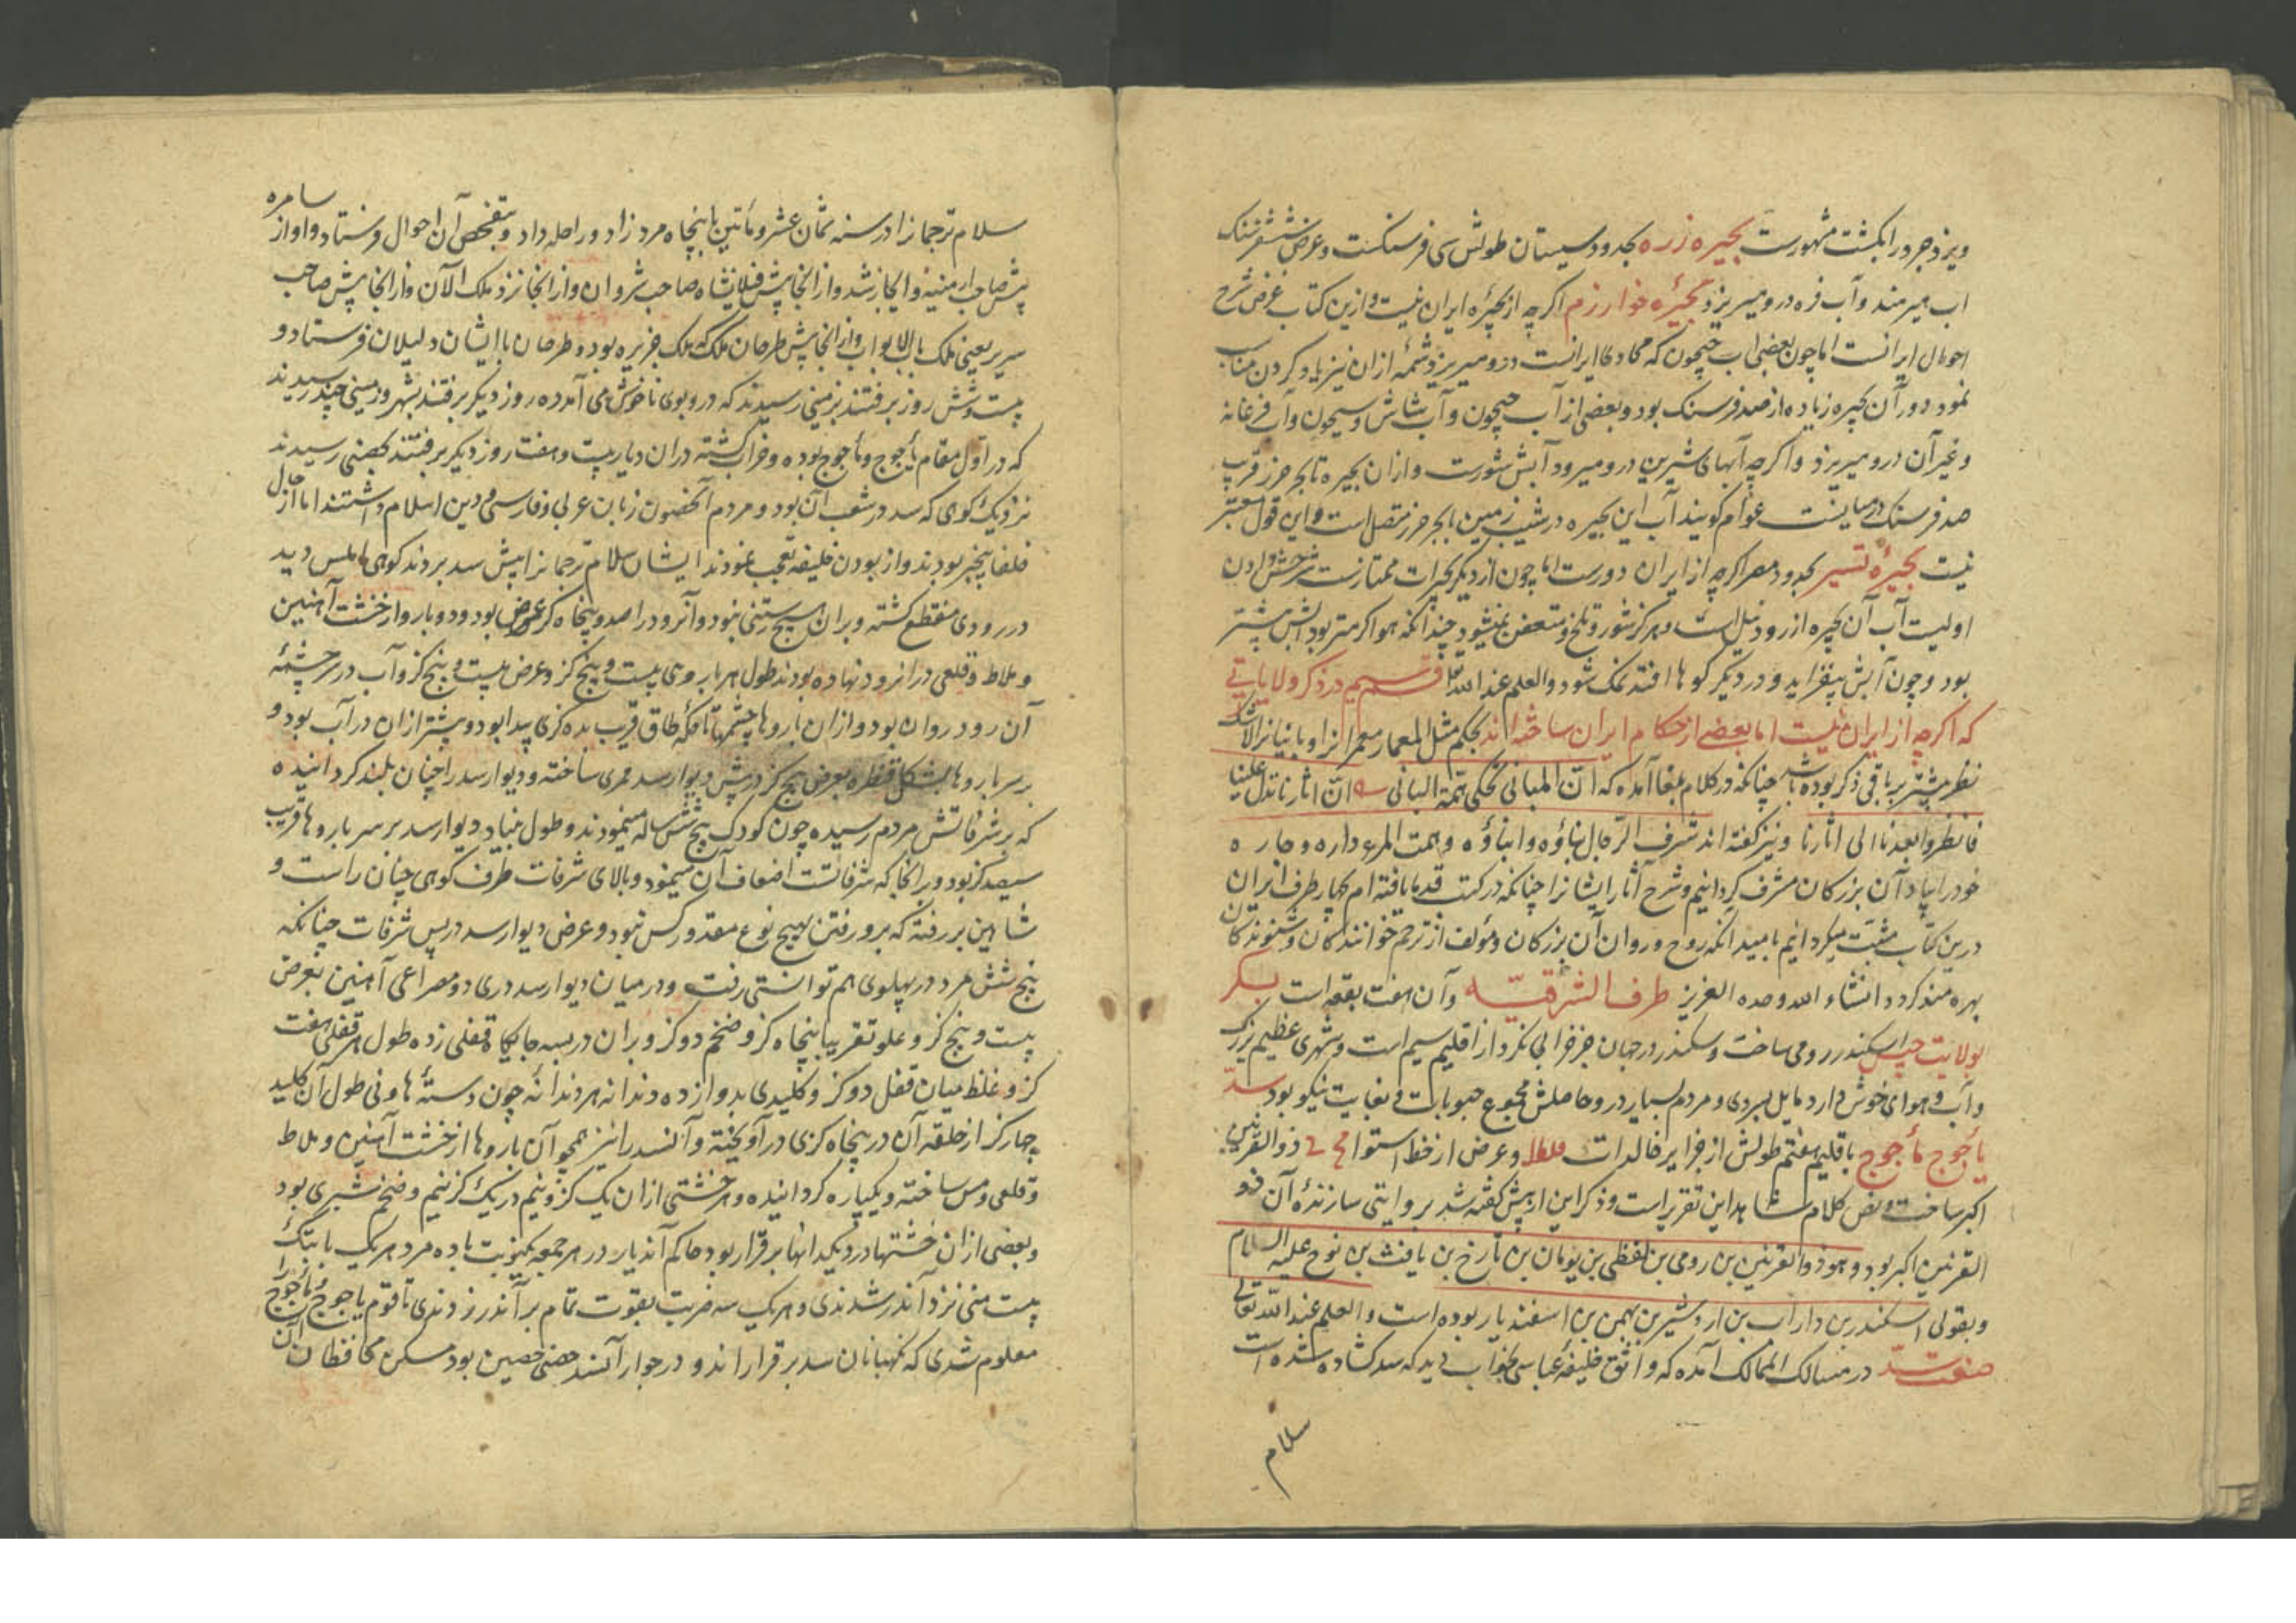 ویزدجرد را بکشت مشهورست بحیره زره بحدود سیستان طولش سی فرسنکست و عرض شش فرسنک
اب هیرمند و آب فره درو میریزد بحیرهٔ خوارزم اکرچه از بحیرهٔ ایران نیست و ازین کتاب غرض شرح
احوال ایرانست اما چون بعضی اب جیحون که محاد ایرانست درو میریزد شمهٔ ازان نیز یاد کردن مناسب
نمود دور آن بحیره زیاده از صد فرسنک بود و بعضی از آب جیحون و آب شاش و سیحون و آب فرغانه
و غیر آن درو میریزد و اکرچه آبهای شیرین درو میرود آبش شورست و ازان بحیره تا بحر خزر قرب
صد فرسنک در میانست عوام کویند آب این بحیره در شیب زمین با بحر خزر متصل است و این قول معتبر
نیست بحیرهٔ تنیس بحدود مصر اکرچه از ایران دورست اما چون از دیکر بحیرات ممتازست شرحش دادن
اولیست آب آن بحیره از رود نیل است و هرکز شور و تلخ و متعفن نمیشود چندانکه هوا کرمتر بود آبش بیشتر
بود و چون آبش بیفزاید و در دیکر کوها افتد نمک شود والعلم عند الله قسم سیم در ذکر ولایاتی
که اکرچه از ایران نیست اما بعضی از حکام ایران ساخته اند بحکم مثل المعمار معمر انرا و بانیانرا الاشک
نظر بیشتر بر باقی ذکر بوده باشد چنانکه در کلام بلغا آمده که ان المبانی تحکی همة البانی ان اثارنا تدل علینا
فانظروا بعدنا الی اثارنا و نیز کفته اند شرف الرجال بناؤه و ابناؤه و همت المرء داره و جاره
خود را بیاد آن بزرکان مشرف کردانیم و شرح آثار ایشانرا چنانکه در کتب قدما یافته ام بچهار طرف ایران
درین کتاب مثبت میکردانیم بامید آنکه روح و روان آن بزرکان و مؤلف از ترحم خوانندکان و شنوندکان
بهره مند کردد انشاء الله وحده العزیز طرف الشرقیه و آن هفت بقعه است
بولایت اسکندر رومی ساخت و سکندر در جهان جز خرابی نکرد از اقلیم سیم است و شهری عظیم بزرک
و آب و هوای خوش دارد مایل بسردی و مردم بسیار درو حاصلش مجموع حبوبات و بغایت نیکو بود سد
یأجوج مأجوج باقلیم هفتم طولش از جزایر خالدات و عرض از خط استوا ذو القرنین
اکبر ساخت و نص کلام شاهد این تقریر است و ذکر این از پیش کفته شد بروایتی سازندهٔ آن ذو
القرنین اکبر بود و هو ذوالقرنین بن رومی بن لفظی بن یونان بن تارخ بن یافث بن نوح علیه السلام
و بقولی اسکندر بن داراب بن اردشیر بن بهمن بن اسفندیار بوده است والعلم عند الله تعالی
صفت سد در مسالک الممالک آمده که واثق خلیفهٔ عباسی بخواب دید که سد کشاده شده است
سلام
سلام ترجمانرا در سنه ثمان عشر و مأتین با پنجاه مرد زاد و راحله داد و بتفحص آن احوال فرستاد و او از سامره
پیش صاحب ارمنیه و ابخاز شد و از انجا پیش فیلانشاه صاحب شروان و از انجا نزد ملک الآن و از انجا پیش صاحب
سریر یعنی ملک باب الابواب و از انجا پیش طرخان ملک که ملک خزیره بود و طرخان با ایشان دلیلان فرستاد و
بیست و شش روز برفتند بزمینی رسیدند که درو بوی ناخوش می آمد ده روز دیکر برفتند بشهر و زمینی چند رسیدند
که در اول مقام یأجوج و مأجوج بوده و خراب کشته دران دیار بیست و هفت روز دیکر برفتند بحصنی رسیدند
نزدیک کوهی که سد در شعب آن بود و مردم آنحصون زبان عربی و فارسی و دین اسلام داشتند اما از حال
خلفا بیخبر بودند و از بودن خلیفه تعجب نمودند ایشان سلام ترجمانرا پیش سد بردند کوهی املس دید
در رودی منقطع کشته و بران هیچ رستنی نبود و آنرود را صد و پنجاه کز عرض بود و دو بارو از خشت آهنین
و ملاط و قلعی درانرود نهاده بودند طول هر باروی بیست و پنج کز و عرض بیست و پنج کز و آب در سرچشمهٔ
آن رود روان بود و ازان باروها چشمها تا تکهٔ طاق قریب ده کزی پیدا بود و بیشتر ازان در آب بود و
بر سر باروها بشکل قنطره بعرض پنج کز در پیش دیوار سد ممری ساخته و دیوار سد را چنان بلند کردانیده
که بر شرفاتش مردم رسیده چون کودک پنج شش ساله مینمودند و طول بنیاد دیوار سد بر سر باروها قریب
سیصد کز بود و برانجا که شرفاتست اضعاف آن مینمود و بالای شرفات طرف کوهی چنان راست و
شاهین بر رفته که برو رفتن بهیچ نوع مقدور کس نبود و عرض دیوار سد در پس شرفات چنانکه
پنج شش مرد در پهلوی هم توانستی رفت و در میان دیوار سد دری دو مصراعی آهنین بعرض
بیست و پنج کز و علو تقریبا پنجاه کز و ضخم دو کز و بران در بسه جایکاه قفلی زده طول هر قفلی هفت
کز و غلظ میان قفل دو کز و کلیدی بدوازده دندانه هر دندانه چون دستهٔ هاونی طول آن کلید
چهار کز از حلقه آن در پنجاه کزی در آویخته و آنسد را نیز همچو آن باروها از خشت آهنین و ملاط
و قلعی و مس ساخته و یکپاره کردانیده و هر خشتی ازان یک کز و نیم در یک کز نیم و ضخم شبری بود
و بعضی ازان خشتها در دیکدانها برقرار بود حاکم آندیار در هر جمعه یکنوبت با ده مرد هریک با پتک
بیست منی نزد آندر شدندی و هریک سه ضربت بقوت تمام بر آندر زدندی تا قوم یاجوج مأجوج را
معلوم شدی که نکهبانان سد برقراراند و در جوار آنسد حصنی حصین بود مسکن محافظان آن